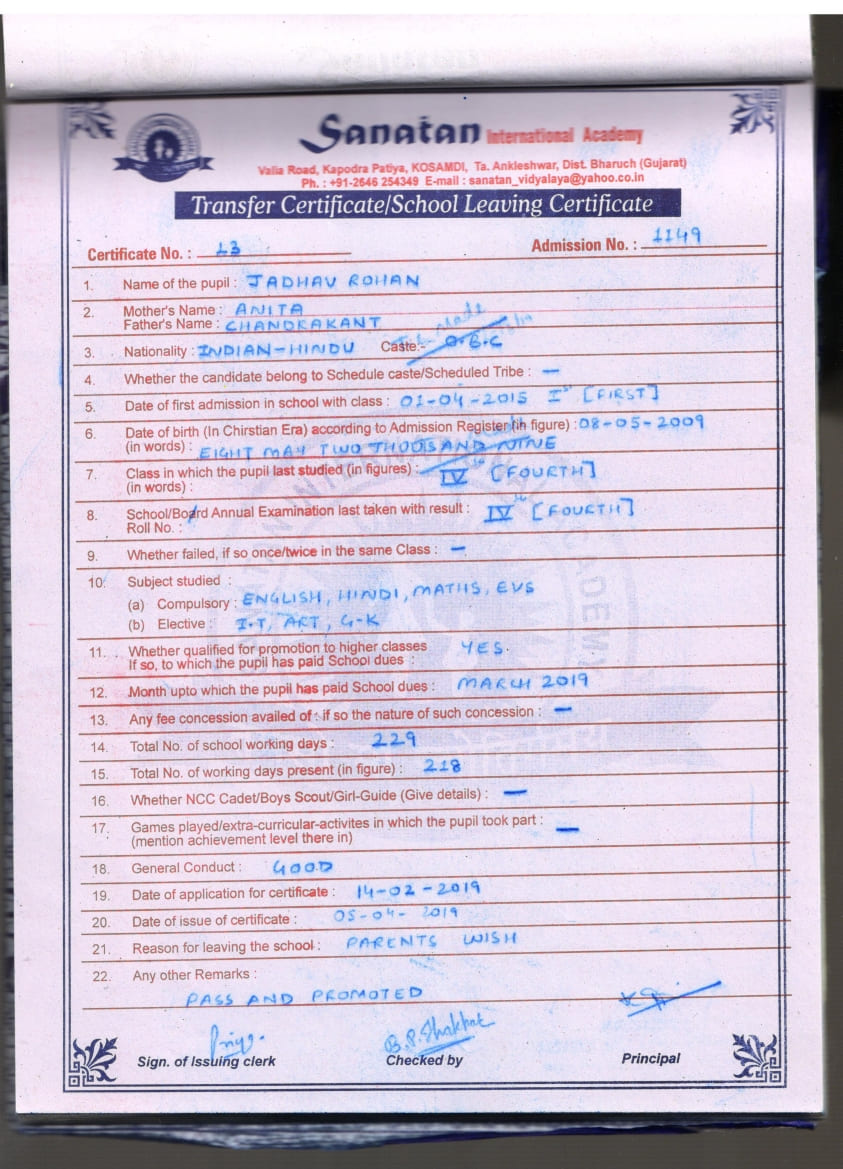 Sanatan International Academy
Valia Road, Kapodra Patiya, KOSAMDI, Ta. Ankleshwar, Dist. Bharuch (Gujarat)
Ph. : +91-2646 254349 E-mail : sanatan_vidyalaya@yahoo.co.in
Transfer Certificate/School Leaving Certificate
Certificate No. : 13 Admission No. : 1149
1. Name of the pupil : JADHAV ROHAN
2. Mother's Name : ANITA
Father's Name : CHANDRAKANT
3. Nationality : INDIAN-HINDU Caste:- O.B.C
4. Whether the candidate belong to Schedule caste/Scheduled Tribe : —
5. Date of first admission in school with class : 01-04-2015 Ist [FIRST]
6. Date of birth (In Chirstian Era) according to Admission Register (in figure) : 08-05-2009
(in words) : EIGHT MAY TWO THOUSAND NINE
7. Class in which the pupil last studied (in figures) : IVth [FOURTH]
(in words) :
8. School/Board Annual Examination last taken with result : IVth [FOURTH]
Roll No. :
9. Whether failed, if so once/twice in the same Class : —
10. Subject studied :
(a) Compulsory : ENGLISH, HINDI, MATHS, EVS
(b) Elective : I.T, ART, G-K
11. Whether qualified for promotion to higher classes YES.
If so, to which the pupil has paid School dues :
12. Month upto which the pupil has paid School dues : MARCH 2019
13. Any fee concession availed of : if so the nature of such concession : —
14. Total No. of school working days : 229
15. Total No. of working days present (in figure) : 218
16. Whether NCC Cadet/Boys Scout/Girl-Guide (Give details) : —
17. Games played/extra-curricular-activites in which the pupil took part : —
(mention achievement level there in)
18. General Conduct : GOOD
19. Date of application for certificate : 14-02-2019
20. Date of issue of certificate : 05-04-2019
21. Reason for leaving the school : PARENTS WISH
22. Any other Remarks :
PASS AND PROMOTED
Sign. of Issuing clerk Checked by Principal